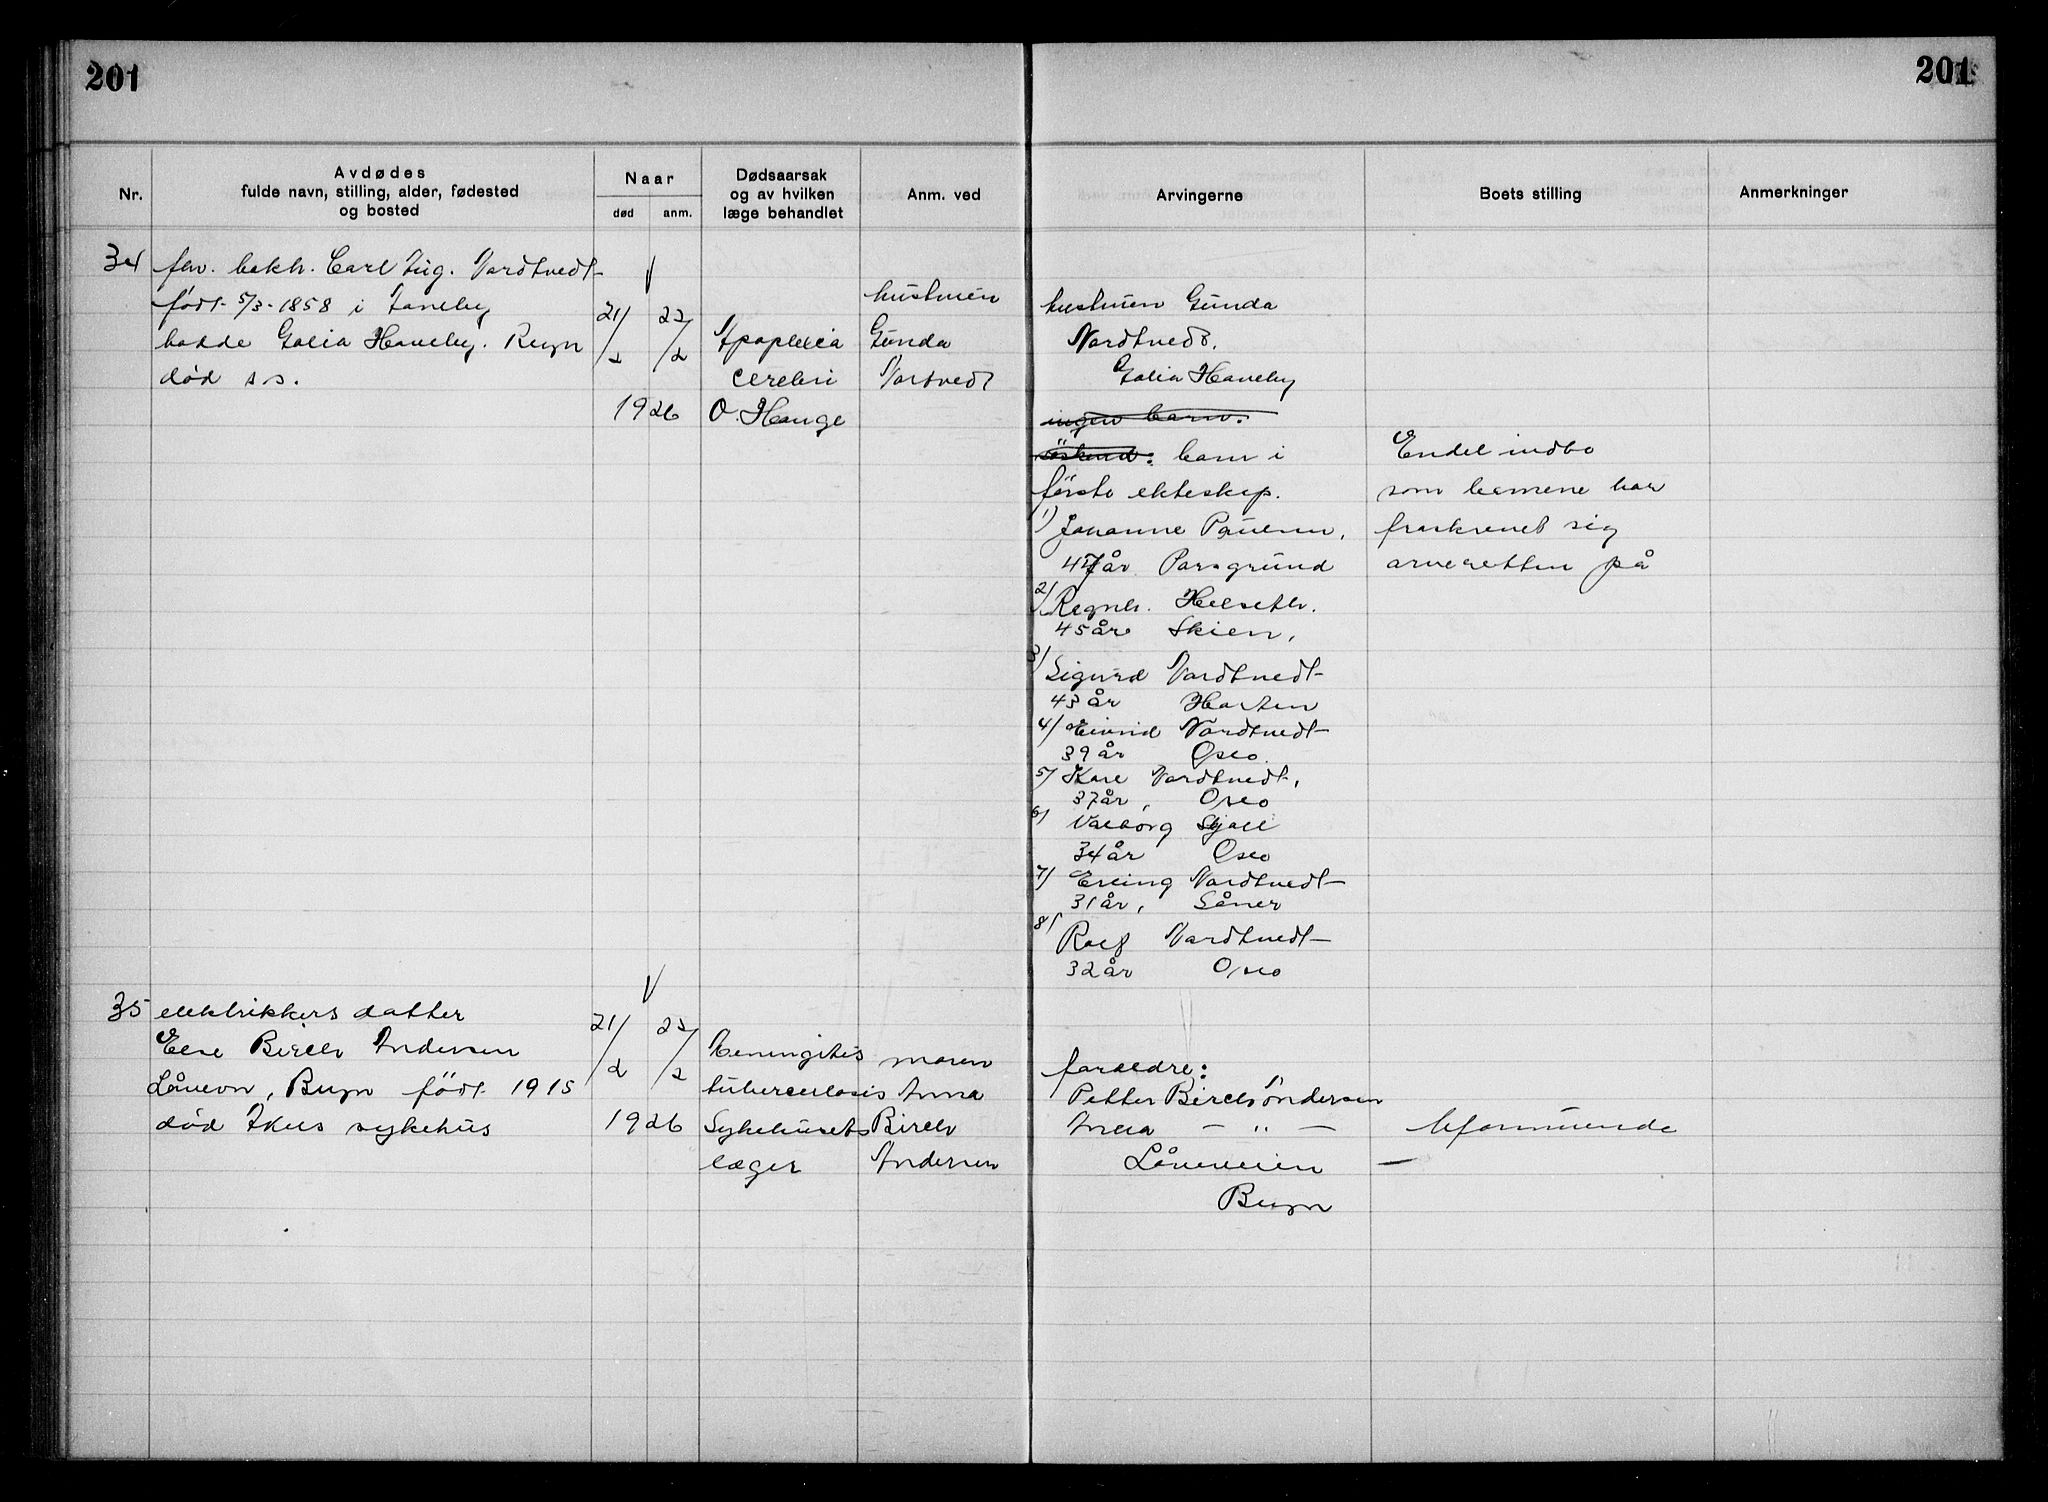 201
201
Nr.
Avdødes
fulde navn, stilling, alder, fødested
og bosted
Naar
død
anm.
Dødsaarsak
og av hvilken
læge behandlet
Anm. ved
Arvingerne
Boets stilling
Anmerkninger
34
fhv. bokh. Carl Aug. Nordtvedt
født 5/3-1858 i
bodde Golia Haneby.
død s.s.
21/2
22/2
1926
Apoplexia
cerebri
O. Hauge
hustruen
Gunda
Nordtvedt
hustruen Gunda
Nordtvedt.
Golia Haneby
ingen barn.
söskend: barn i
første ekteskap.
1) Johanne
47 år Porsgrund
2/ Ragnh. Helseth.
45 år Skien,
3/ Sigurd Nordtvedt
43 år Horten
4/ Eivind Nordtvedt
39 år Oslo.
5/ Kåre Nordtvedt,
37 år, Oslo
6/ Valborg
34 år Oslo
7/ Erling Nordtvedt
31 år, Såner
8/ Rolf Nordtvedt
32 år Oslo
Endel indbo
som barnene har
fraskrevet sig
arveretten på
35
elektrikkers datter
Else Birch Andersen
født 1915
død Akers sykehus
21/2
1926
Meningitis
tuberculosis
Sykehusets
læger
moren
Anna
Birch
Andersen
foraeldre:
Petter Birch Andersen
Anna — " —
Låneveien —
Bugn
Uformuende